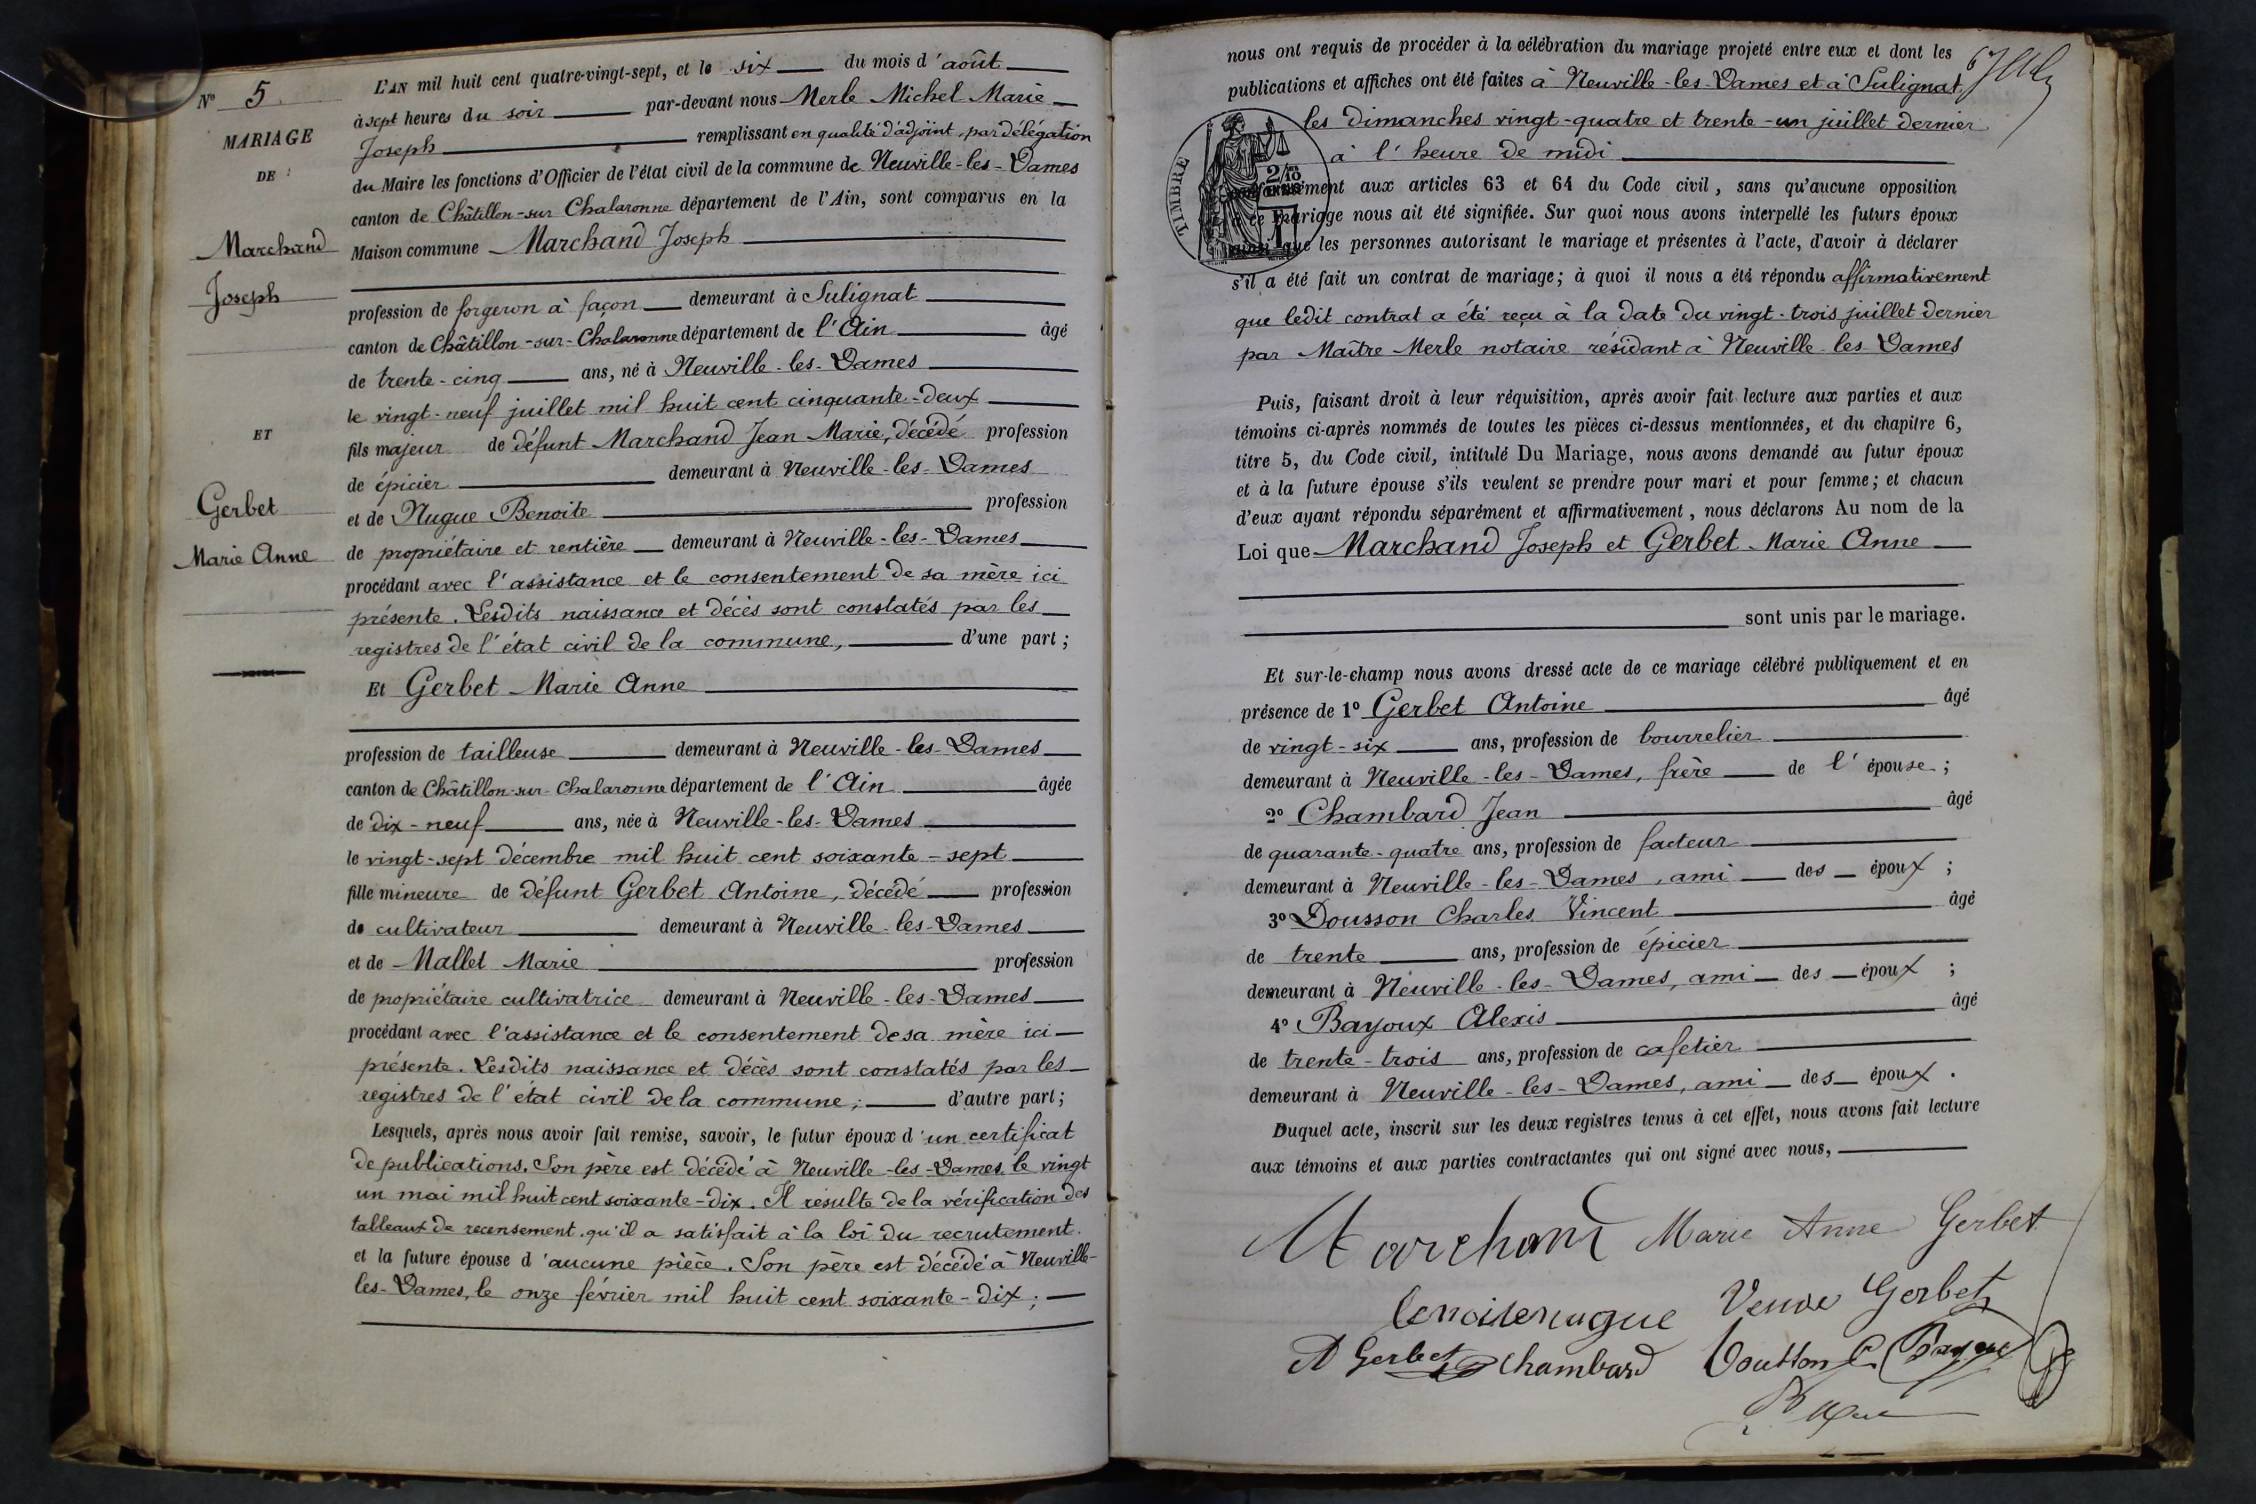 Nº 5
MARIAGE
DE
Marchand
Joseph
ET
Gerbet
Marie Anne
L'AN mil huit cent quatre-vingt-sept, et le six du mois d'août
à sept heures du soir par-devant nous Merle Michel Marie
Joseph remplissant en qualité d'adjoint, par délégation
du Maire les fonctions d'Officier de l'état civil de la commune de Neuville-les-Dames
canton de Châtillon-sur Chalaronne département de l'Ain, sont comparus en la
Maison commune Marchand Joseph
profession de forgeron à façon demeurant à Sulignat
canton de Châtillon-sur-Chalaronne département de l'Ain âgé
de trente-cinq ans, né à Neuville-les-Dames
le vingt-neuf juillet mil huit cent cinquante-deux
fils majeur de défunt Marchand Jean Marie, décédé profession
de épicier demeurant à Neuville-les-Dames
et de Nugue Benoite profession
de propriétaire et rentière demeurant à Neuville-les-Dames
procédant avec l'assistance et le consentement de sa mère ici
présente. Lesdits naissance et décès sont constatés par les
registres de l'état civil de la commune, d'une part;
Et Gerbet Marie Anne
profession de tailleuse demeurant à Neuville-les-Dames
canton de Châtillon-sur-Chalaronne département de l'Ain âgée
de dix-neuf ans, née à Neuville-les-Dames
le vingt-sept décembre mil huit cent soixante-sept
fille mineure de défunt Gerbet Antoine, décédé profession
de cultivateur demeurant à Neuville-les-Dames
et de Mallet Marie profession
de propriétaire cultivatrice demeurant à Neuville-les-Dames
procédant avec l'assistance et le consentement de sa mère ici
présente. Lesdits naissance et décès sont constatés par les
registres de l'état civil de la commune; d'autre part;
Lesquels, après nous avoir fait remise, savoir, le futur époux d'un certificat
de publications. Son père est décédé à Neuville-les-Dames, le vingt
un mai mil huit cent soixante-dix. Il résulte de la vérification des
tableaux de recensement, qu'il a satisfait à la loi du recrutement.
et la future épouse d'aucune pièce. Son père est décédé à Neuville-
les-Dames, le onze février mil huit cent soixante-dix;
nous ont requis de procéder à la célébration du mariage projeté entre eux et dont les
publications et affiches ont été faites à Neuville-les-Dames et à Sulignat
les dimanches vingt-quatre et trente-un juillet dernier
à l'heure de midi
TIMBRE
conformément aux articles 63 et 64 du Code civil, sans qu'aucune opposition
à ce mariage nous ait été signifiée. Sur quoi nous avons interpellé les futurs époux
ainsi que les personnes autorisant le mariage et présentes à l'acte, d'avoir à déclarer
s'il a été fait un contrat de mariage; à quoi il nous a été répondu affirmativement
que ledit contrat a été reçu à la date du vingt-trois juillet dernier
par Maître Merle notaire résidant à Neuville-les-Dames
Puis, faisant droit à leur réquisition, après avoir fait lecture aux parties et aux
témoins ci-après nommés de toutes les pièces ci-dessus mentionnées, et du chapitre 6,
titre 5, du Code civil, intitulé Du Mariage, nous avons demandé au futur époux
et à la future épouse s'ils veulent se prendre pour mari et pour femme; et chacun
d'eux ayant répondu séparément et affirmativement, nous déclarons Au nom de la
Loi que Marchand Joseph et Gerbet Marie Anne
sont unis par le mariage.
Et sur-le-champ nous avons dressé acte de ce mariage célébré publiquement et en
présence de 1º Gerbet Antoine âgé
de vingt-six ans, profession de bourrelier
demeurant à Neuville-les-Dames, frère de l'épouse;
2º Chambard Jean âgé
de quarante-quatre ans, profession de facteur
demeurant à Neuville-les-Dames, ami des époux;
3º Dousson Charles Vincent âgé
de trente ans, profession de épicier
demeurant à Neuville-les-Dames, ami des époux;
4º Bayoux Alexis âgé
de trente-trois ans, profession de cafetier
demeurant à Neuville-les-Dames, ami des époux.
Duquel acte, inscrit sur les deux registres tenus à cet effet, nous avons fait lecture
aux témoins et aux parties contractantes qui ont signé avec nous,
Marchand Marie Anne Gerbet
Veuve Gerbet
A Gerbet Chambard